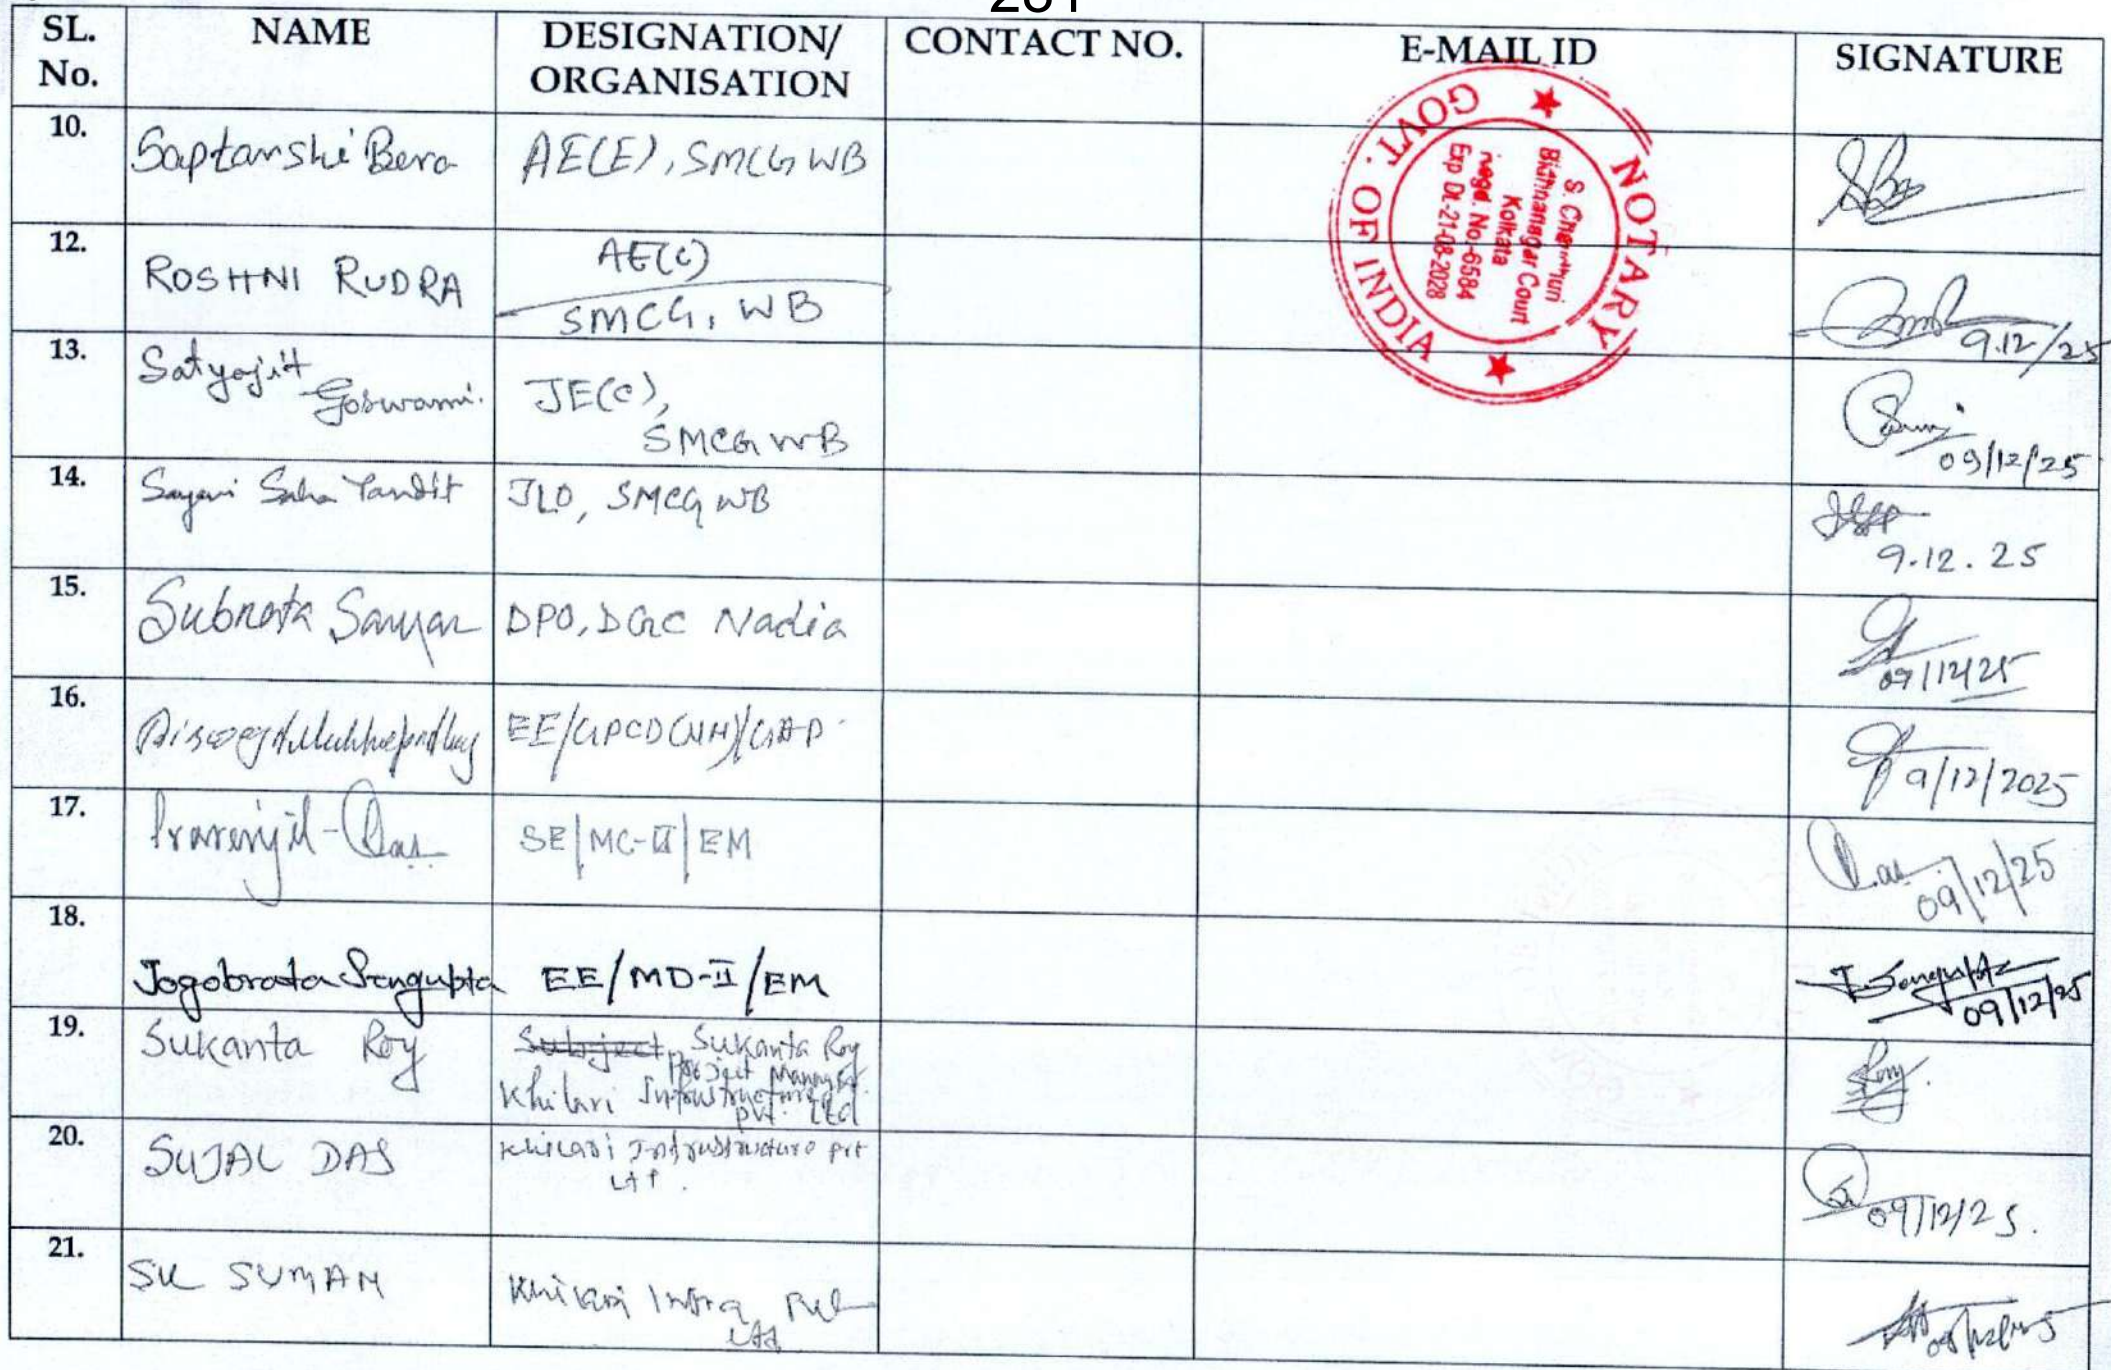 SL. No. NAME DESIGNATION/ ORGANISATION CONTACT NO. E-MAIL ID SIGNATURE
10. Saptarshi Bera AE(E), SMCG WB
12. ROSHNI RUDRA AE(C) SMCG, WB 9.12/25
13. Satyajit Goswami. JE(C), SMCG WB 09/12/25
14. Sayani Saha Pandit JLO, SMCG WB 9.12.25
15. Subrata DPO, DGC Nadia 09/12/25
16. EE/GPCD(NH)/GAP 9/12/2025
17. Das SE/MC-II/EM Das 09/12/25
18. Jogobrata Sengupta EE/MD-II/EM J Sengupta 09/12/25
19. Sukanta Roy Subject Sukanta Roy Project Manager Khilari Infrastructure pvt. Ltd Roy.
20. SUJAL DAS Khilari Infrustructure pvt 09/12/25.
21. SK SUMAN Khilari Infra
GOVT. OF INDIA
NOTARY
Bidhannagar Court
Kolkata
Regd. No.-6584
Exp Dt.-21-08-2028